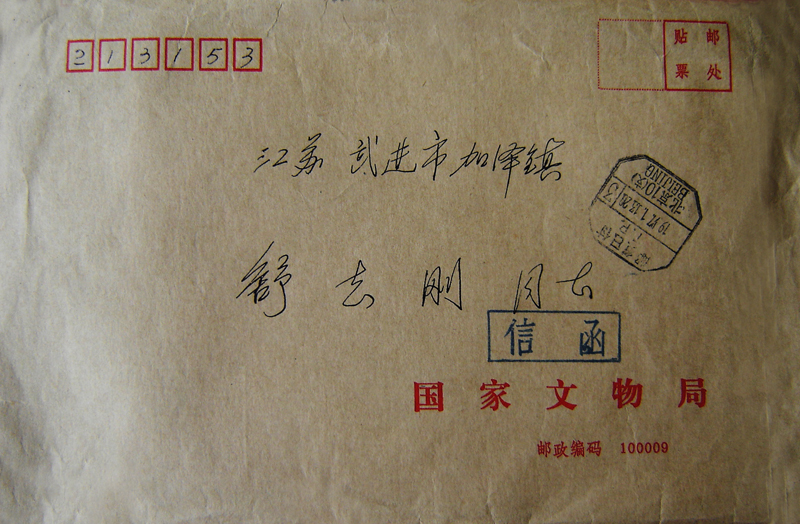 213153
贴邮
票处
江苏 武进市加泽镇
北京10(支)
BEIJING
邮资已付
舒志刚 同志
信函
国家文物局
邮政编码 100009